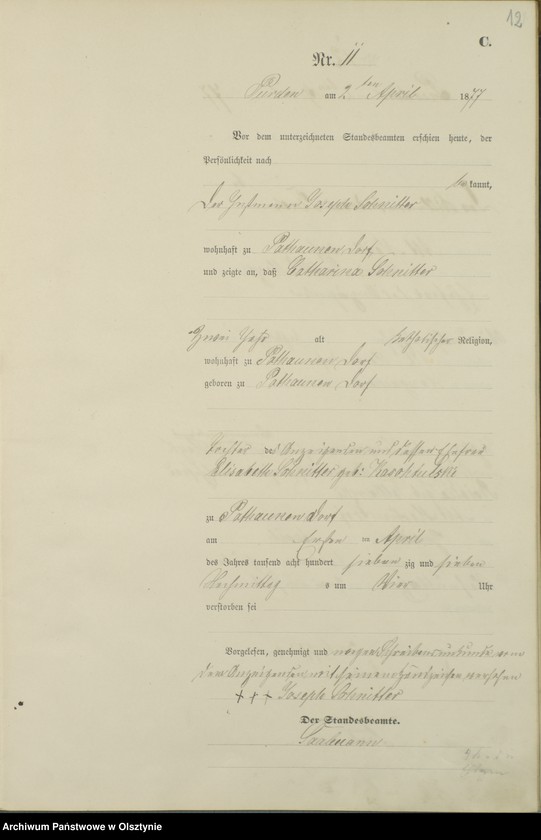 12
C.
Nr. 11
Purden am 2 ten April 1877
Vor dem unterzeichneten Standesbeamten erschien heute, der
Persönlichkeit nach
bekannt,
Der Instmann Joseph Schnitter
wohnhaft zu Pathaunen Dorf
und zeigte an, daß Catharina Schnitter
Zwei Jahr alt katholischer Religion,
wohnhaft zu Pathaunen Dorf
geboren zu Pathaunen Dorf
Tochter des Anzeigenden und dessen Ehefrau
Elisabeth Schnitter geb:
zu Pathaunen Dorf
am Ersten ten April
des Jahres tausend acht hundert sieben zig und sieben
Nachmittags um Vier Uhr
verstorben sei
Vorgelesen, genehmigt und wegen Schreibensunkunde von
dem Anzeigenden mit seinem Handzeichen versehen
+++ Joseph Schnitter
Der Standesbeamte.
Saalmann
Archiwum Państwowe w Olsztynie